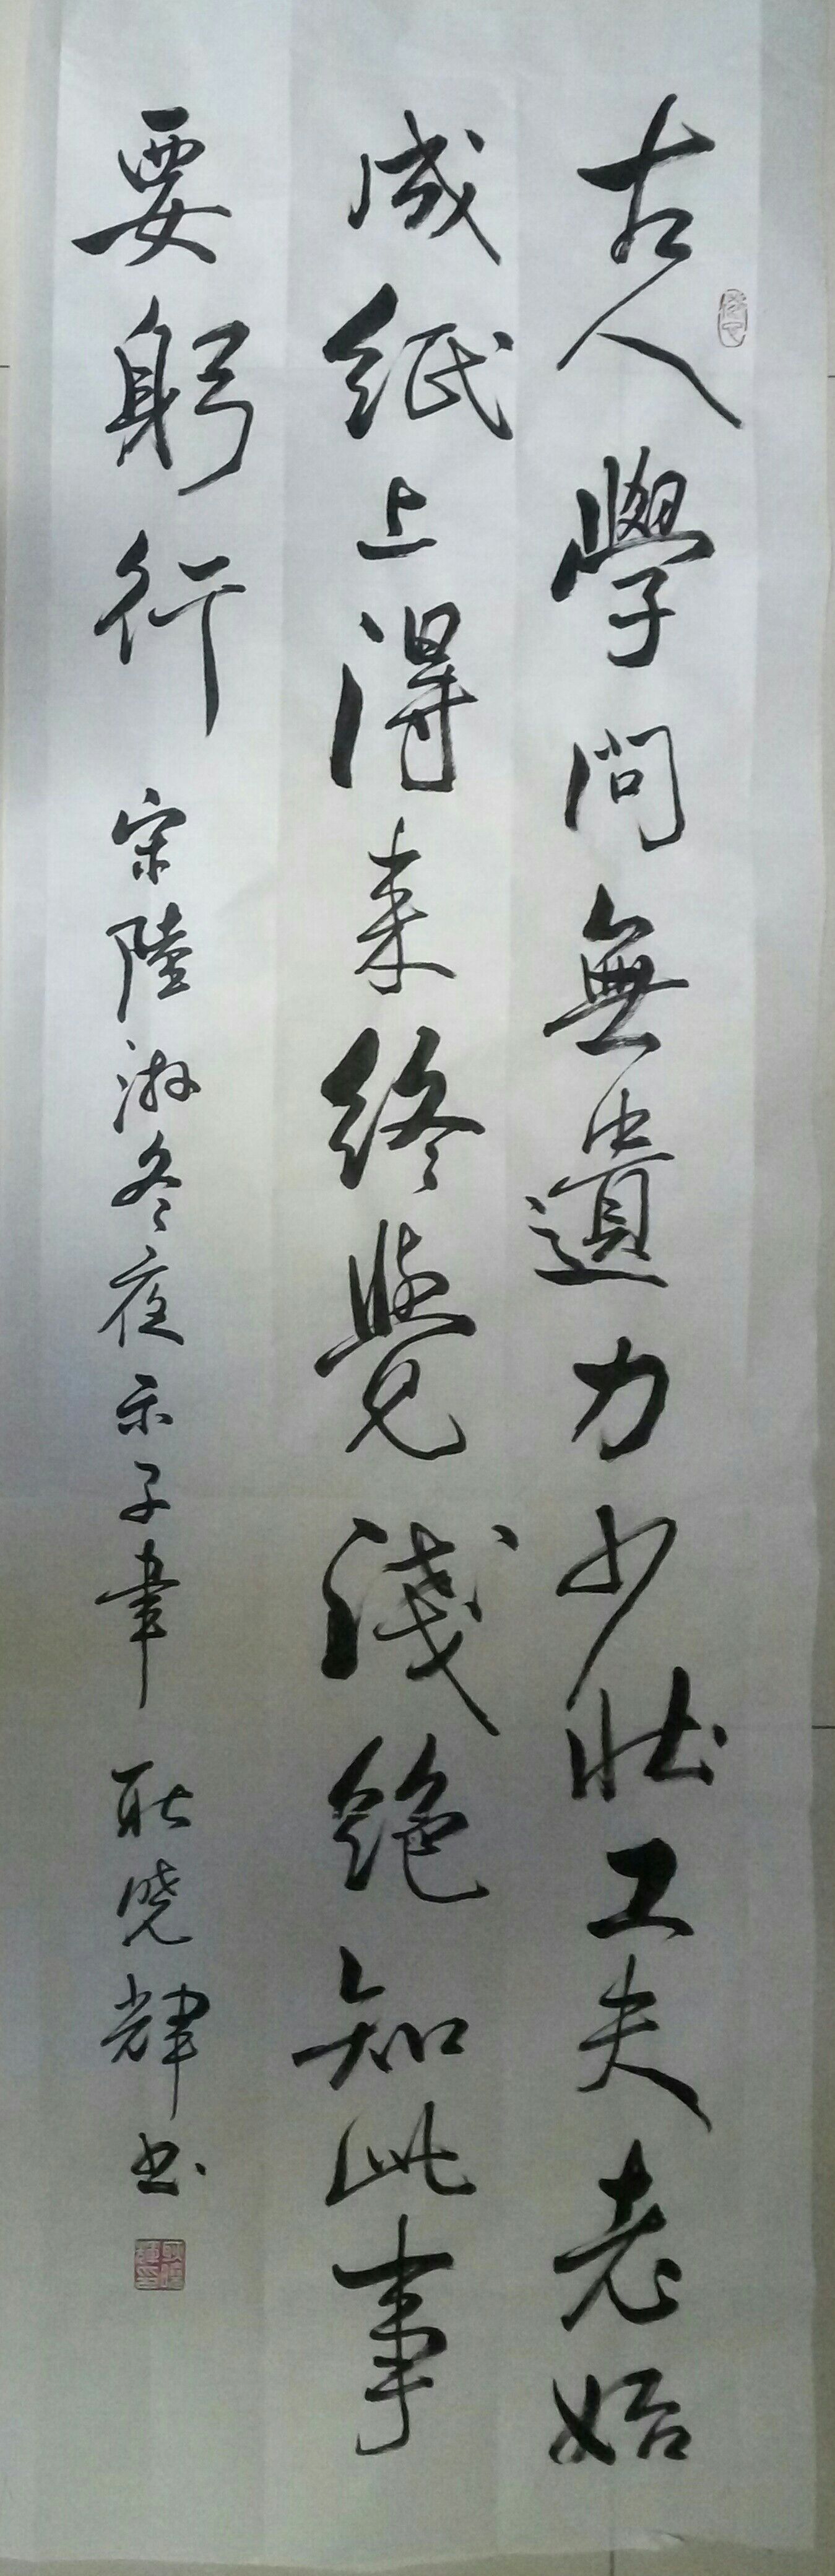 古人學問無遺力少壯工夫老始
成紙上得来終覺淺絶知此事
要躬行 宋陸游冬夜示子聿 耿晓輝书